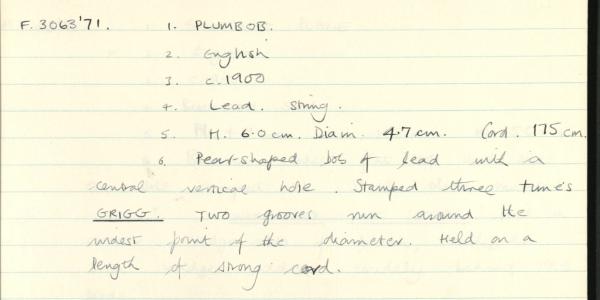 F. 3063'71. 1. PLUMBOB.
2. English
3. c. 1900
4. Lead. String.
5. H. 6.0 cm. Diam. 4.7 cm. Cord. 175 cm.
6. Pear-shaped bob of lead with a
central vertical hole. Stamped three times
GRIGG. Two grooves run around the
widest point of the diameter. Held on a
length of strong cord.